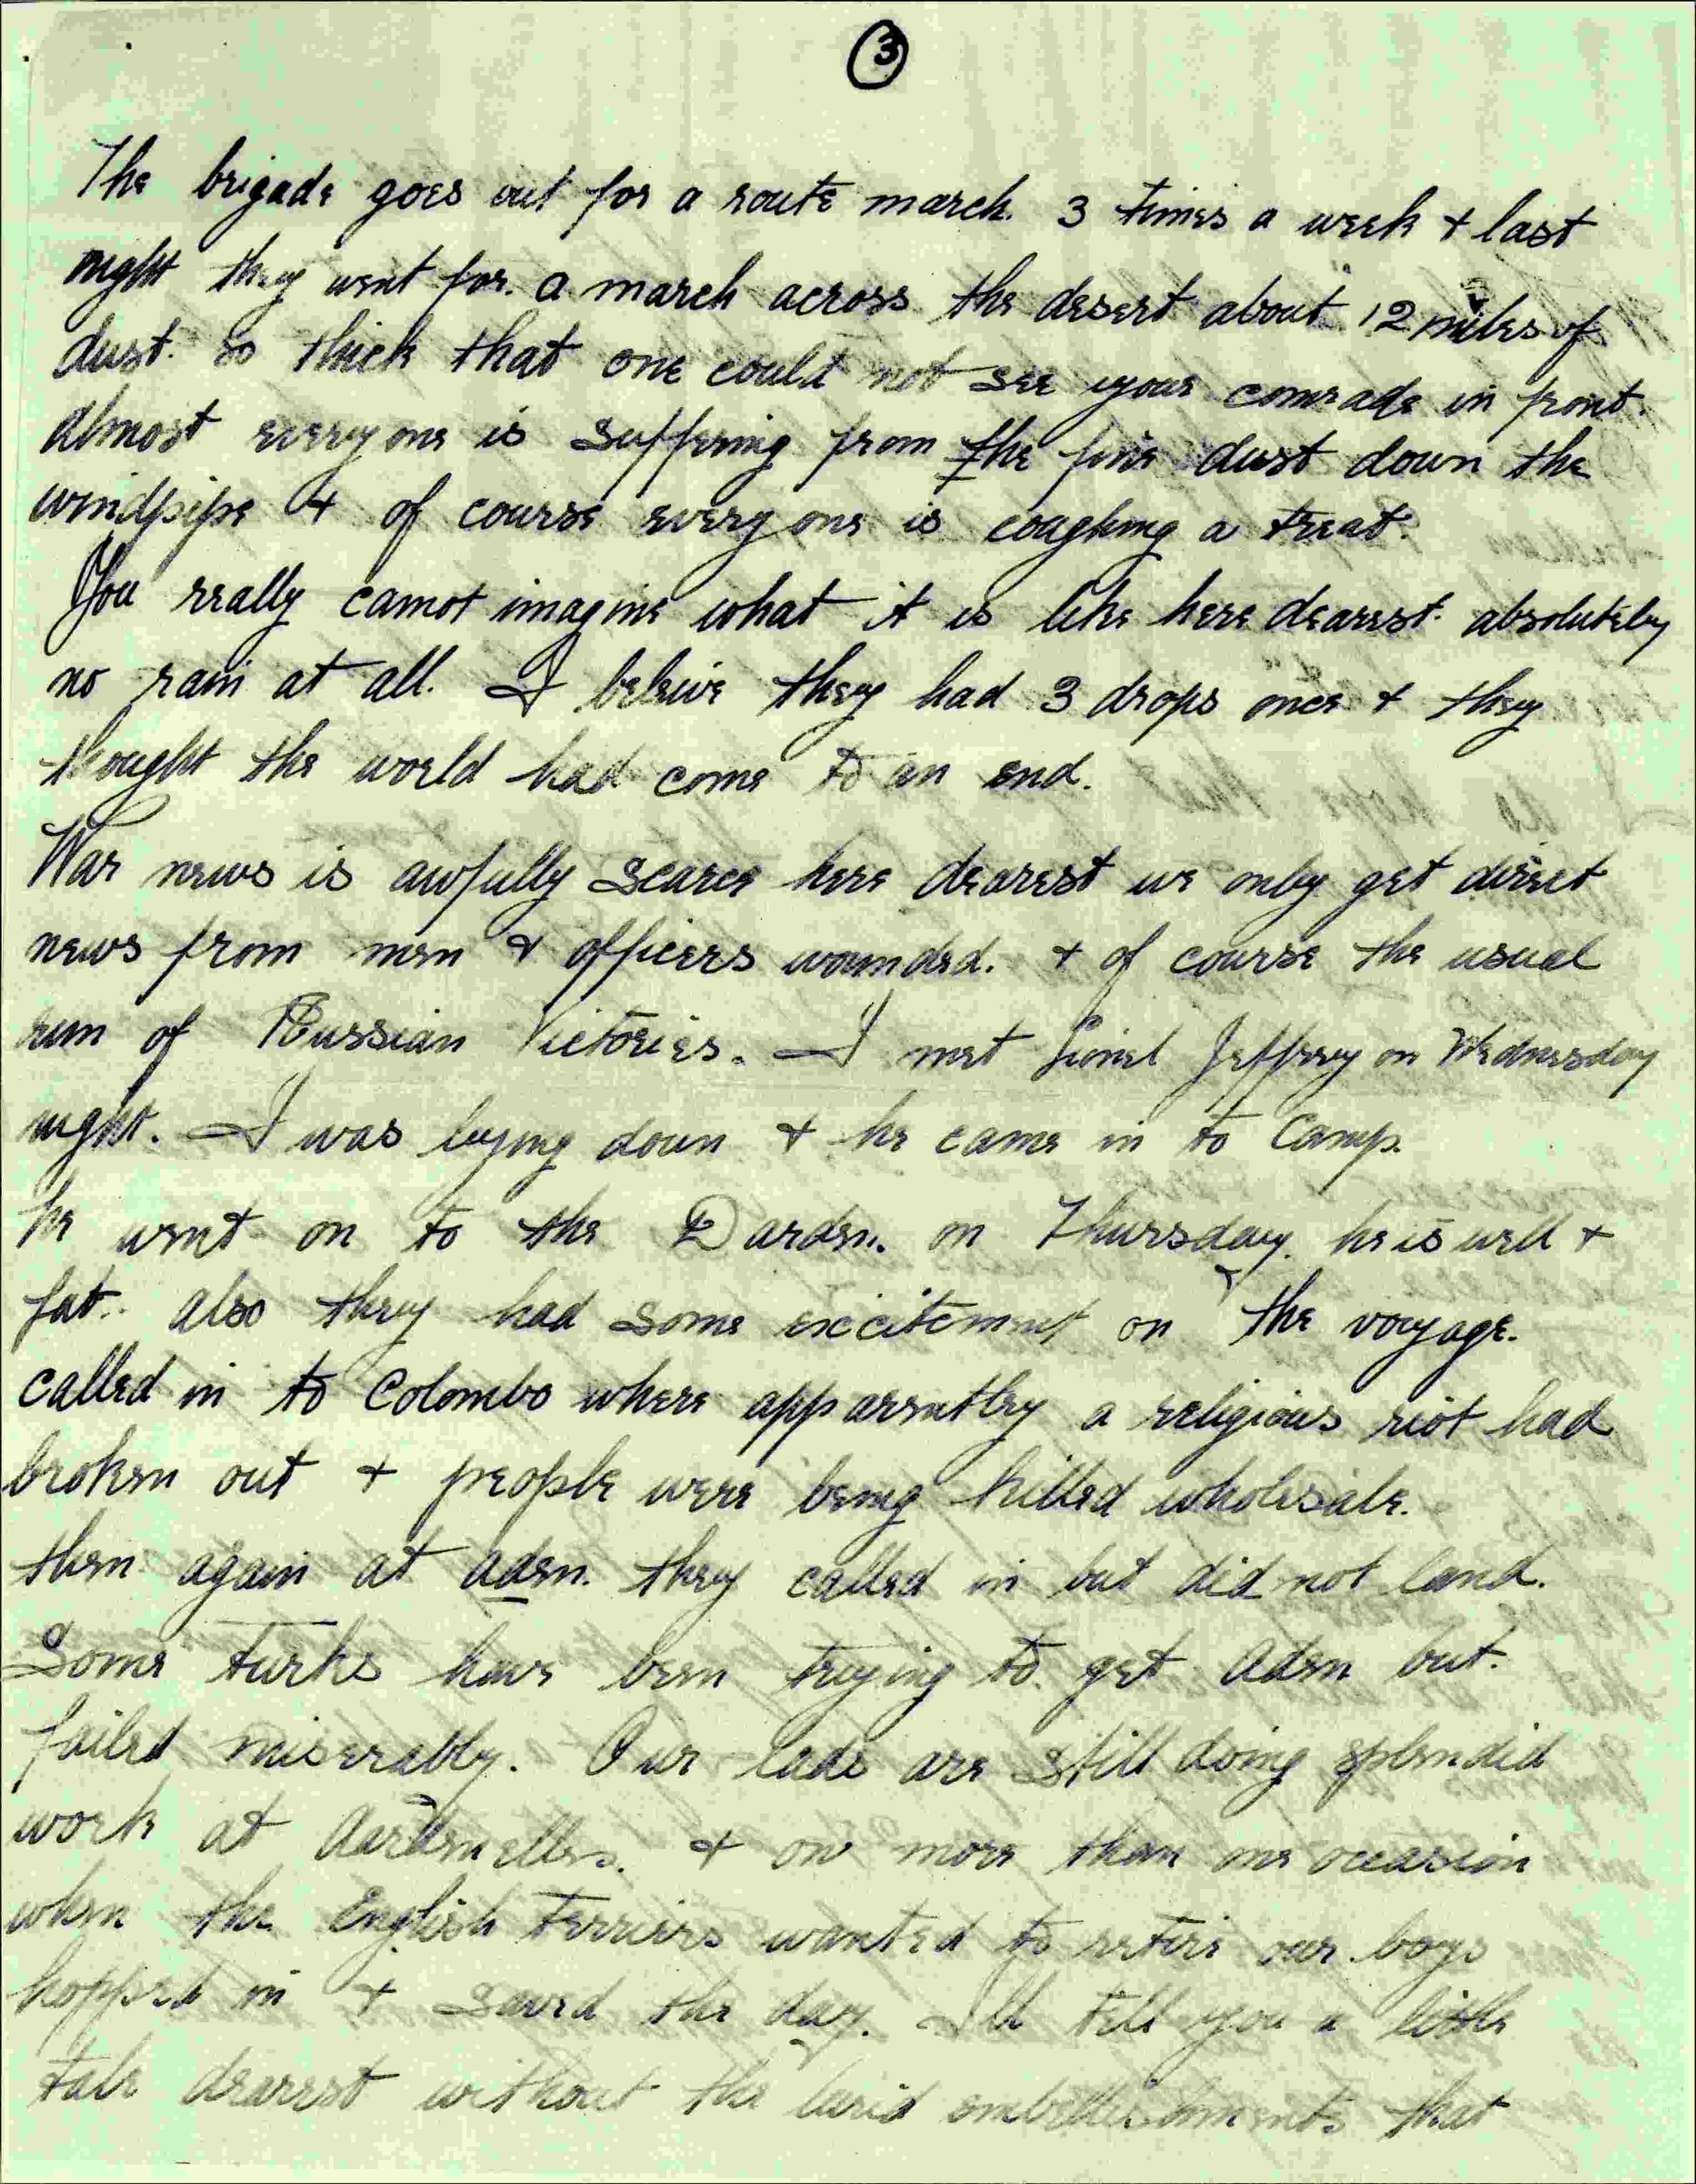 3
The brigade goes out for a route march. 3 times a week + last
night they went for. a march across the desert about 12 miles of
dust. so thick that one could not see your comrade in front.
almost everyone is suffering from the fine dust down the
windpipe + of course every one is coughing a treat.
You really cannot imagine what it is like here dearest. absolutely
no rain at all. I beleive they had 3 drops once + they
thought the world had come to an end.
War news is awfully scarce here dearest we only get direct
news from men + officers wounded. + of course the usual
run of Russian Victories. I met Lionel Jeffrey on Wednesday
night. I was lying down + he came in to Camp.
he went on to the Darden. on Thursday. he is well +
fat. also they had some excitement on the voyage.
called in to Colombo where apparently a religious riot had
broken out + people were being killed wholesale.
then again at aden. they called in but did not land.
Some turks have been trying to get aden but.
failed miserably. Our lads are still doing splendid
work at dardenelles. + on more than one occasion
when the English Terriers wanted to retire our boys
hopped in + saved the day. Ill tell you a little
tale dearest without the lurid embellishments that